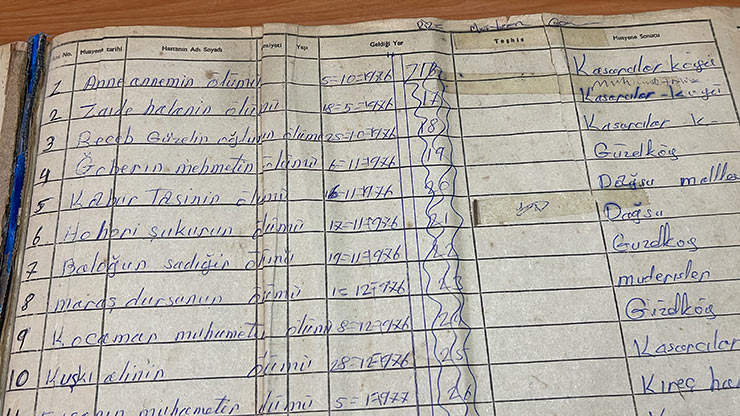 No. Muayene tarihi Hastanın Adı Soyadı Yaşı Geldiği Yer Teşhis Muayene Sonucu
1 Anneannemin ölümü 5=10=1976 Kasarcılar köyü
2 Zaide halenin ölümü 18=5=1976 17 Kasarcılar - köyü
3 Receb Güzelin oğlunun ölümü 25=10=1976 18 Kasarcılar k-
4 mehmetin ölümü 6=11=1976 19 Güzelköy
5 Kabur Taşinin ölümü 16=11=1976 20 Dağsu
6 şukurun ölümü 17=11=1976 21 Dağsu
7 Baloğun sadığın ölümü 19=11=1976 22 Güzelköy
8 maraş dursunun ölümü 1=12=1976 23 muderisler
9 Kocaman muhametin ölümü 8=12=1976 24 Güzelköy
10 Kuşkı alinin ölümü 28=12=1976 25 Kasarcılar
muhametin ölümü 5=1=1977 26 Kireç